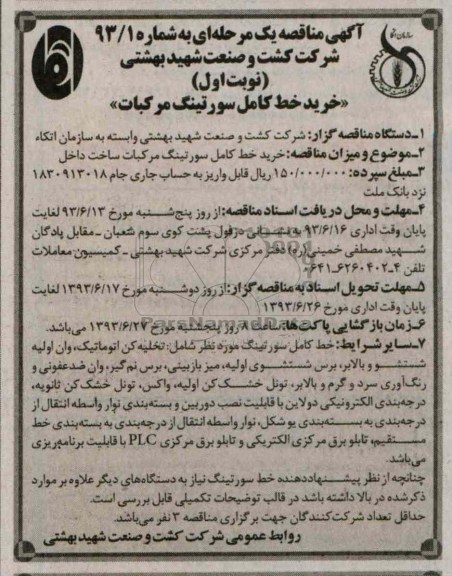 آگهی مناقصه یک مرحله‌ای به شماره ۹۳/۱
شرکت کشت و صنعت شهید بهشتی
(نوبت اول)
«خرید خط کامل سورتینگ مرکبات»
۱ـ دستگاه مناقصه گزار: شرکت کشت و صنعت شهید بهشتی وابسته به سازمان اتکاء
۲ـ موضوع و میزان مناقصه: خرید خط کامل سورتینگ مرکبات ساخت داخل
۳ـ مبلغ سپرده: ۱۵۰/۰۰۰/۰۰۰ ریال قابل واریز به حساب جاری جام ۱۸۳۰۹۱۳۰۱۸
نزد بانک ملت
۴ـ مهلت و محل دریافت اسناد مناقصه: از روز پنج‌شنبه مورخ ۹۳/۶/۱۳ لغایت
پایان وقت اداری ۹۳/۶/۱۶ به نشانی دزفول پشت کوی سوم شعبان ـ مقابل پادگان
شهید مصطفی خمینی(ره) دفتر مرکزی شرکت شهید بهشتی ـ کمیسیون معاملات
تلفن ۴ـ ۰۶۴۱ـ۶۲۶۰۴۰۲
۵ـ مهلت تحویل اسناد به مناقصه گزار: از روز دوشنبه مورخ ۱۳۹۳/۶/۱۷ لغایت
پایان وقت اداری مورخ ۱۳۹۳/۶/۲۶
۶ـ زمان بازگشایی پاکت‌ها: ساعت ۸ روز پنجشنبه مورخ ۱۳۹۳/۶/۲۷ می‌باشد.
۷ـ سایر شرایط: خط کامل سورتینگ مورد نظر شامل: تخلیه کن اتوماتیک، وان اولیه
شستشو و بالابر، برس شستشوی اولیه، میز بازبینی، برس نم گیر، وان ضدعفونی و
رنگ‌آوری سرد و گرم و بالابر، تونل خشک کن اولیه، واکس، تونل خشک کن ثانویه،
درجه‌بندی الکترونیکی دولاین با قابلیت نصب دوربین و بسته‌بندی نوار واسطه انتقال از
درجه‌بندی به بسته‌بندی یو شکل، نوار واسطه انتقال از درجه‌بندی به بسته‌بندی خط
مستقیم، تابلو برق مرکزی الکتریکی و تابلو برق مرکزی PLC با قابلیت برنامه‌ریزی
می‌باشد.
چنانچه از نظر پیشنهاددهنده خط سورتینگ نیاز به دستگاه‌های دیگر علاوه بر موارد
ذکر شده در بالا داشته باشد در قالب توضیحات تکمیلی قابل بررسی است.
حداقل تعداد شرکت‌کنندگان جهت برگزاری مناقصه ۳ نفر می‌باشد.
روابط عمومی شرکت کشت و صنعت شهید بهشتی